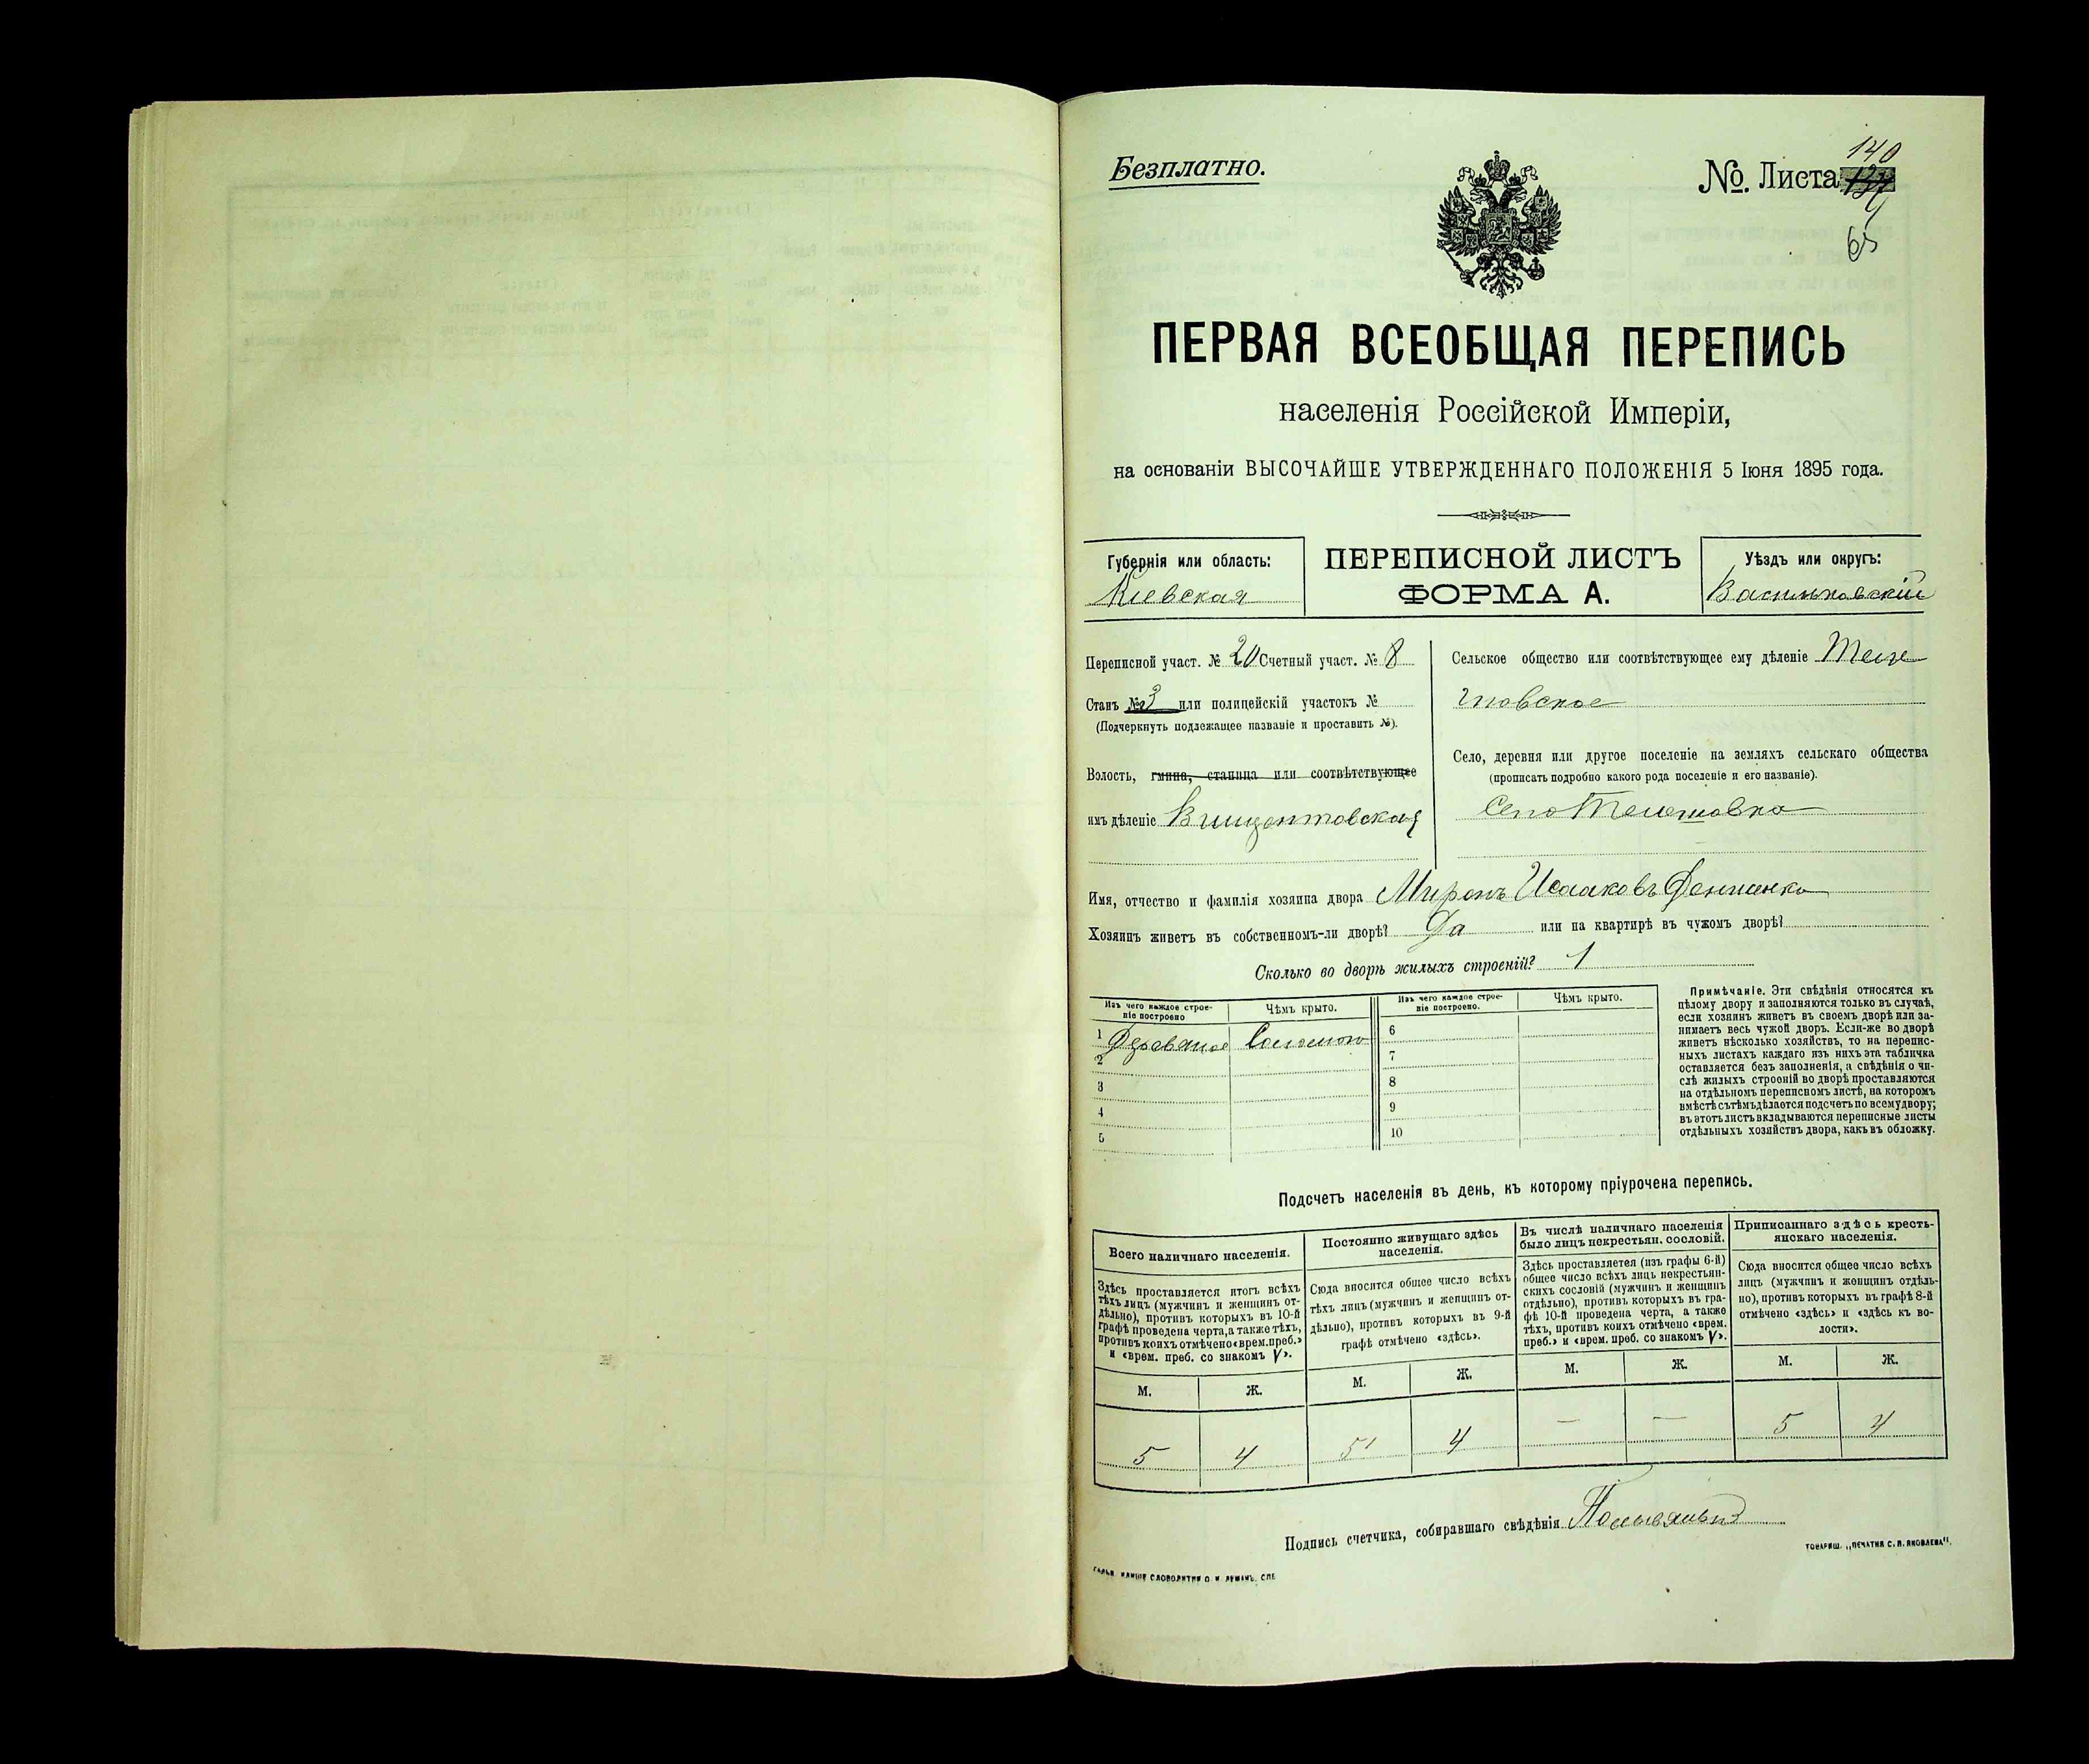 Безплатно.
№. Листа 140
65
ПЕРВАЯ ВСЕОБЩАЯ ПЕРЕПИСЬ
населенія Россійской Имперіи,
на основаніи ВЫСОЧАЙШЕ УТВЕРЖДЕННАГО ПОЛОЖЕНІЯ 5 Іюня 1895 года.
Губернія или область:
Кіевская
ПЕРЕПИСНОЙ ЛИСТЪ
ФОРМА А.
Уѣздъ или округъ:
Васильковскій
Переписной участ. № 20 Счетный участ. № 8
Станъ № 3 или полицейскій участокъ №
(Подчеркнуть подлежащее названіе и проставить №).
Волость, гмина, станица или соотвѣтствующее
имъ дѣленіе Винцентовская
Сельское общество или соотвѣтствующее ему дѣленіе Теле
шовское
Село, деревня или другое поселеніе на земляхъ сельскаго общества
(прописать подробно какого рода поселеніе и его названіе).
Село Телешовка
Имя, отчество и фамилія хозяина двора Миронъ Исааковъ
Хозяинъ живетъ въ собственномъ-ли дворѣ? Да или на квартирѣ въ чужомъ дворѣ?
Сколько во дворѣ жилыхъ строеній? 1
Изъ чего каждое строе-
ніе построено
Чѣмъ крыто.
Изъ чего каждое строе-
ніе построено.
Чѣмъ крыто.
1 Деревяное Соломою
2
3
4
5
6
7
8
9
10
Примѣчаніе. Эти свѣдѣнія относятся къ
цѣлому двору и заполняются только въ случаѣ,
если хозяинъ живетъ въ своемъ дворѣ или за-
нимаетъ весь чужой дворъ. Если-же во дворѣ
живетъ нѣсколько хозяйствъ, то на перепис-
ныхъ листахъ каждаго изъ нихъ эта табличка
оставляется безъ заполненія, а свѣдѣнія о чи-
слѣ жилыхъ строеній во дворѣ проставляются
на отдѣльномъ переписномъ листѣ, на которомъ
вмѣстѣ съ тѣмъ дѣлается подсчетъ по всему двору;
въ этотъ листъ вкладываются переписные листы
отдѣльныхъ хозяйствъ двора, какъ въ обложку.
Подсчетъ населенія въ день, къ которому пріурочена перепись.
Всего наличнаго населенія.
Здѣсь проставляется итогъ всѣхъ
тѣхъ лицъ (мужчинъ и женщинъ от-
дѣльно), противъ которыхъ въ 10-й
графѣ проведена черта, а также тѣхъ,
противъ коихъ отмѣчено «врем. преб.»
и «врем. преб. со знакомъ V».
М. Ж.
5 4
Постоянно живущаго здѣсь
населенія.
Сюда вносится общее число всѣхъ
тѣхъ лицъ (мужчинъ и женщинъ от-
дѣльно), противъ которыхъ въ 9-й
графѣ отмѣчено «здѣсь».
М. Ж.
5 4
Въ числѣ наличнаго населенія
было лицъ некрестьян. сословій.
Здѣсь проставляется (изъ графы 6-й)
общее число всѣхъ лицъ некрестьян-
скихъ сословій (мужчинъ и женщинъ
отдѣльно), противъ которыхъ въ гра-
фѣ 10-й проведена черта, а также
тѣхъ, противъ коихъ отмѣчено «врем.
преб.» и «врем. преб. со знакомъ V».
М. Ж.
— —
Приписаннаго здѣсь кресть-
янскаго населенія.
Сюда вносится общее число всѣхъ
лицъ (мужчинъ и женщинъ отдѣль-
но), противъ которыхъ въ графѣ 8-й
отмѣчено «здѣсь» и «здѣсь къ во-
лости».
М. Ж.
5 4
Подпись счетчика, собиравшаго свѣдѣнія
ТОВАРИЩ. „ПЕЧАТНЯ С. П. ЯКОВЛЕВА".
СЛОВОЛИТНИ О. И. ЛЕМАНЪ. СПБ